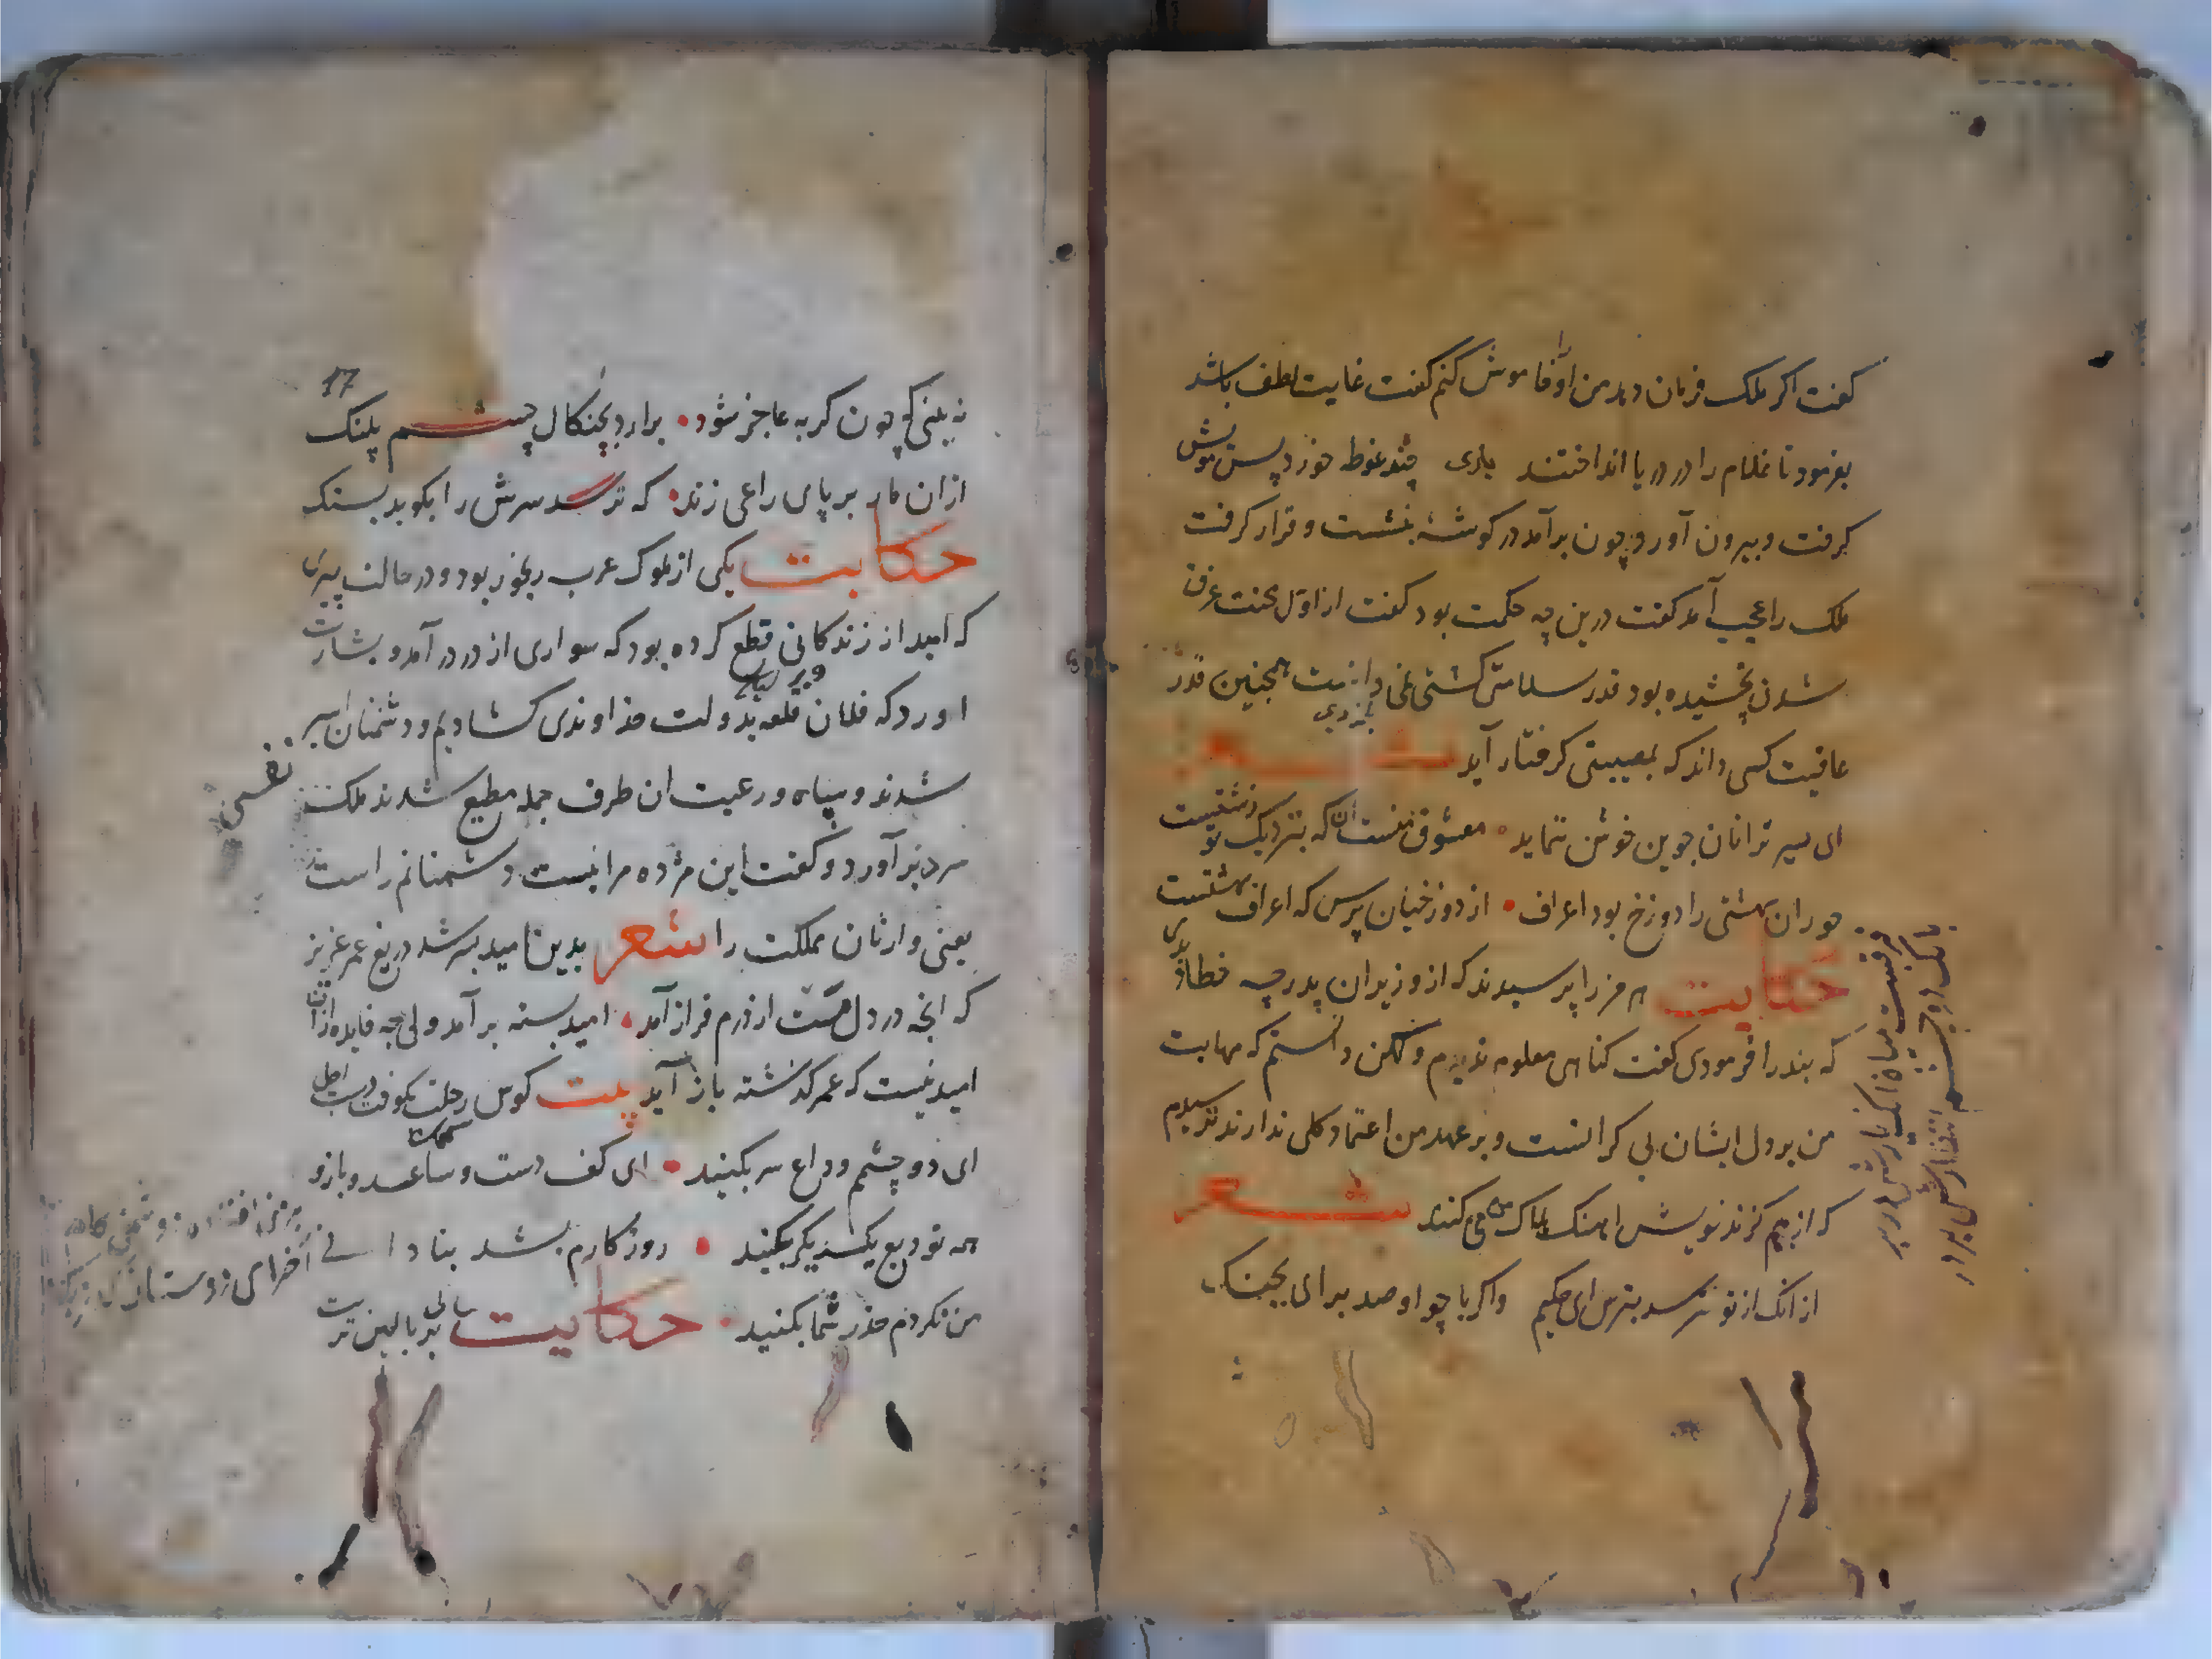 کفت اکر ملک فرمان دهد من او را خاموش کنم کفت غایت لطف باشد
بفرمود تا غلام را در دریا انداختند باری چند غوطه خورد پس مویش
کرفت و بیرون آورد چون برآمد در کوشهٔ بنشست و قرار کرفت
ملک را عجب آمد کفت درین چه حکمت بود کفت از اول محنت غرق
شدن نچشیده بود قدر سلامتی کشتی نمی دانست همچنین قدر
عافیت کسی داند که بمصیبتی کرفتار آید شعر
ای سیر ترا نان جوین خوش ننماید معشوق منست آن که بنزدیک تو زشتست
حوران بهشتی را دوزخ بود اعراف از دوزخیان پرس که اعراف بهشتست
حکایت هرمز را پرسیدند که از وزیران پدر چه خطا دیدی
که بند را فرمودی کفت کناهی معلوم ندیدم ولکن دانستم که مهابت
من بر دل ایشان بی کرانست و بر عهد من اعتماد کلی ندارند ترسیدم
که از بیم کزند خویش اهنک هلاک من کنند شعر
از انک از تو ترسد بترس ای حکیم واکر با چو او صد برای بجنک
17
نه بینی که چون کربه عاجز شود برارد بچنکال چشم پلنک
ازان مار بر پای راعی زند که ترسد سرش را بکوبد بسنک
حکایت یکی از ملوک عرب رنجور بود و در حالت پیری
که امید از زندکانی قطع کرده بود که سواری از در درآمد و بشارت
اورد که فلان قلعه بدولت خداوندی کشادیم و دشمنان اسیر
شدند و سپاه و رعیت ان طرف جمله مطیع شدند ملک
نفسی
سرد برآورد و کفت این مژده مرا نیست دشمنانم راست
یعنی وارثان مملکت را شعر بدین امید بسر شد دریغ عمر عزیز
که انچه در دلمست از درم فراز آمد امید بسته برآمد ولی چه فایده زانک
امید نیست که عمر کذشته باز آید بیت کوس رحلت بکوفت دست اجل
ای دو چشم وداع سر بکنید ای کف دست و ساعد و بازو
همه تودیع یکدیکر بکنید روزکارم بشد بنادانی
من نکردم حذر شما بکنید حکایت سالی بر بالین تربت